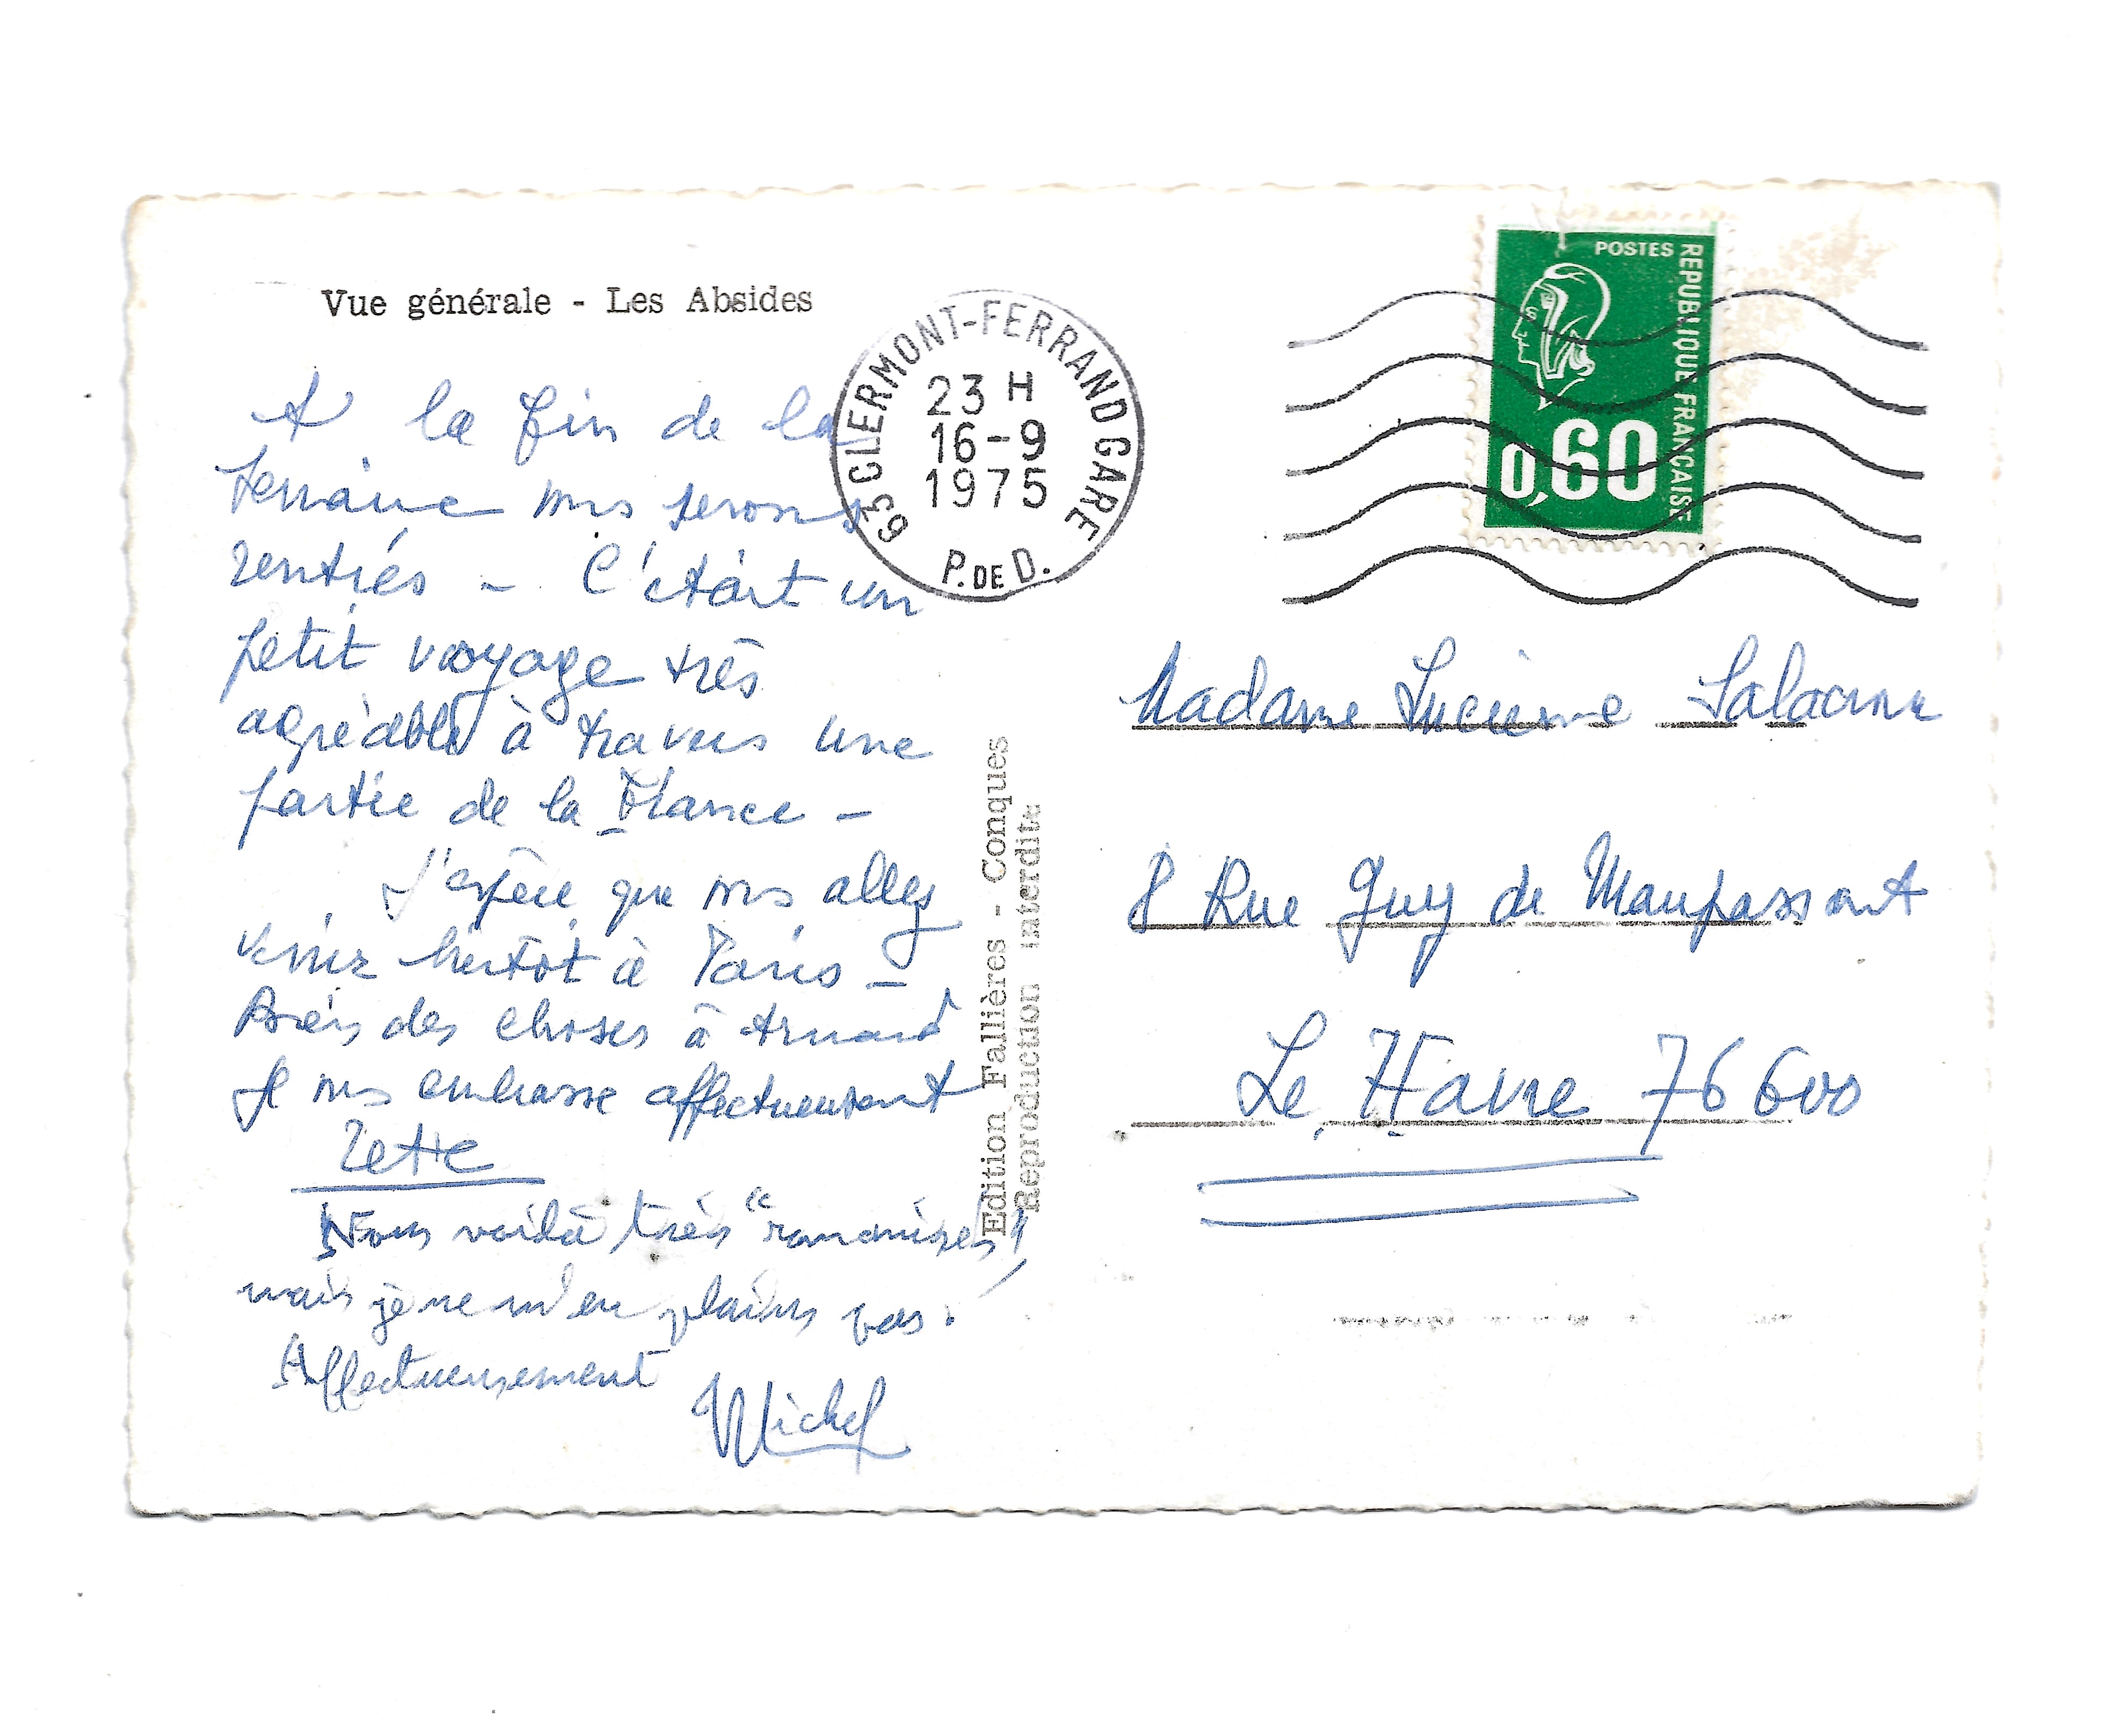 Vue générale - Les Absides
63 CLERMONT-FERRAND GARE
23 H
16-9
1975
P. DE D.
POSTES
REPUBLIQUE FRANCAISE
0,60
A la fin de la
semaine ns serons
rentrés - C'était un
petit voyage très
agréable à travers une
partie de la France -
J'espère que vs allez
venir bientôt à Paris -
Bien des choses à Armand
Je vs embrasse affectueusement
Zette
Nous voilà très "romanisés"!
mais je ne m'en plains pas.
Affectueusement
Michel
Edition Fallières - Conques
Reproduction interdite
Madame Lucienne
8 Rue Guy de Maupassant
Le Havre 76600